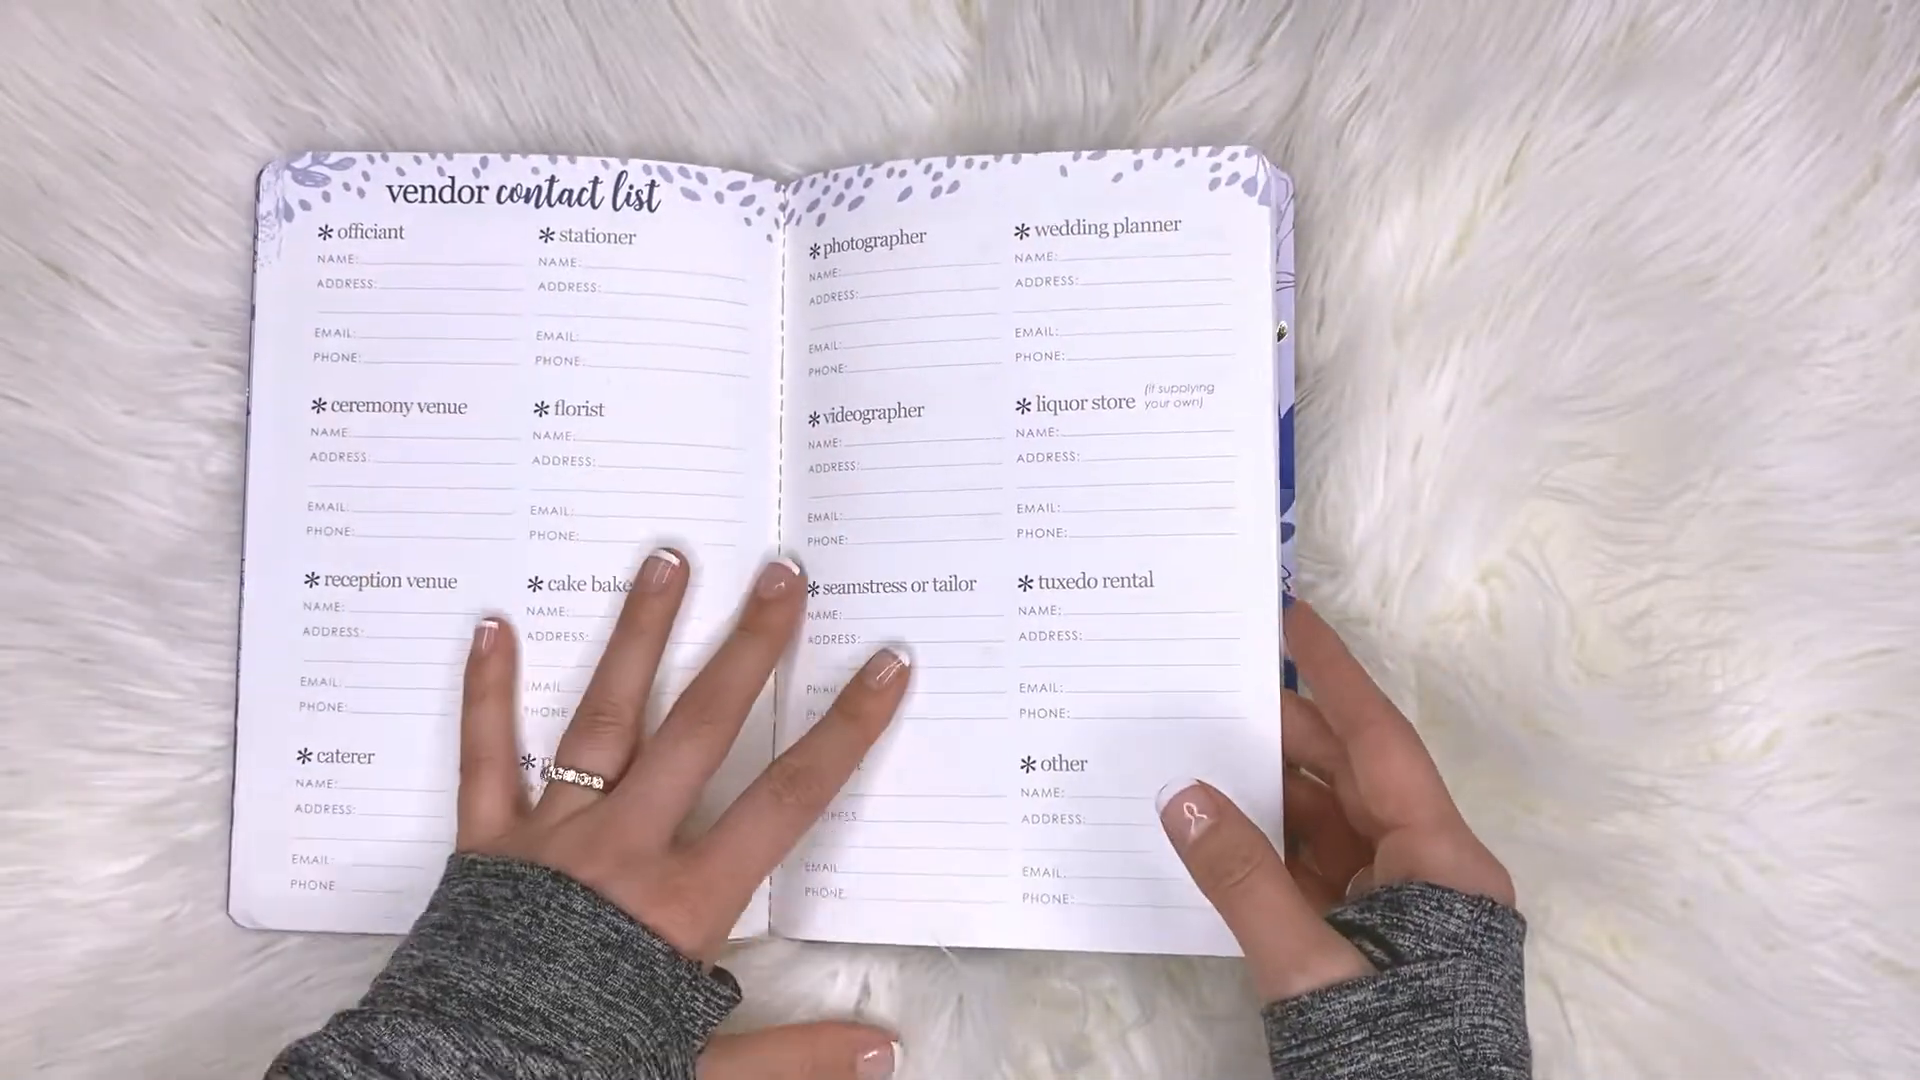 vendor contact list
* officiant
NAME:
ADDRESS:
EMAIL:
PHONE:
* stationer
NAME:
ADDRESS:
EMAIL:
PHONE:
* ceremony venue
NAME
ADDRESS:
EMAIL:
PHONE:
* florist
NAME:
ADDRESS:
EMAIL:
PHONE:
* reception venue
NAME:
ADDRESS:
EMAIL:
PHONE:
* cake bake
NAME:
ADDRESS:
EMAIL
PHONE
* caterer
NAME:
ADDRESS:
EMAIL:
PHONE
* photographer
NAME:
ADDRESS:
EMAIL:
PHONE:
* wedding planner
NAME:
ADDRESS:
EMAIL:
PHONE:
* videographer
NAME:
ADDRESS:
EMAIL:
PHONE:
* liquor store (if supplying
your own)
NAME:
ADDRESS:
EMAIL:
PHONE:
* seamstress or tailor
NAME:
ADDRESS:
* tuxedo rental
NAME:
ADDRESS:
EMAIL:
PHONE:
EMAIL
PHONE
* other
NAME:
ADDRESS:
EMAIL:
PHONE: